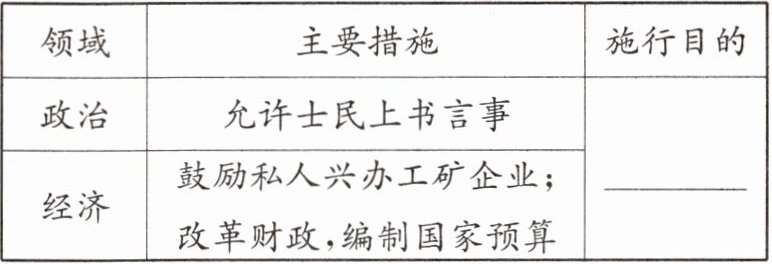 领域 主要措施 施行目的
政治 允许士民上书言事
经济 鼓励私人兴办工矿企业;
改革财政,编制国家预算